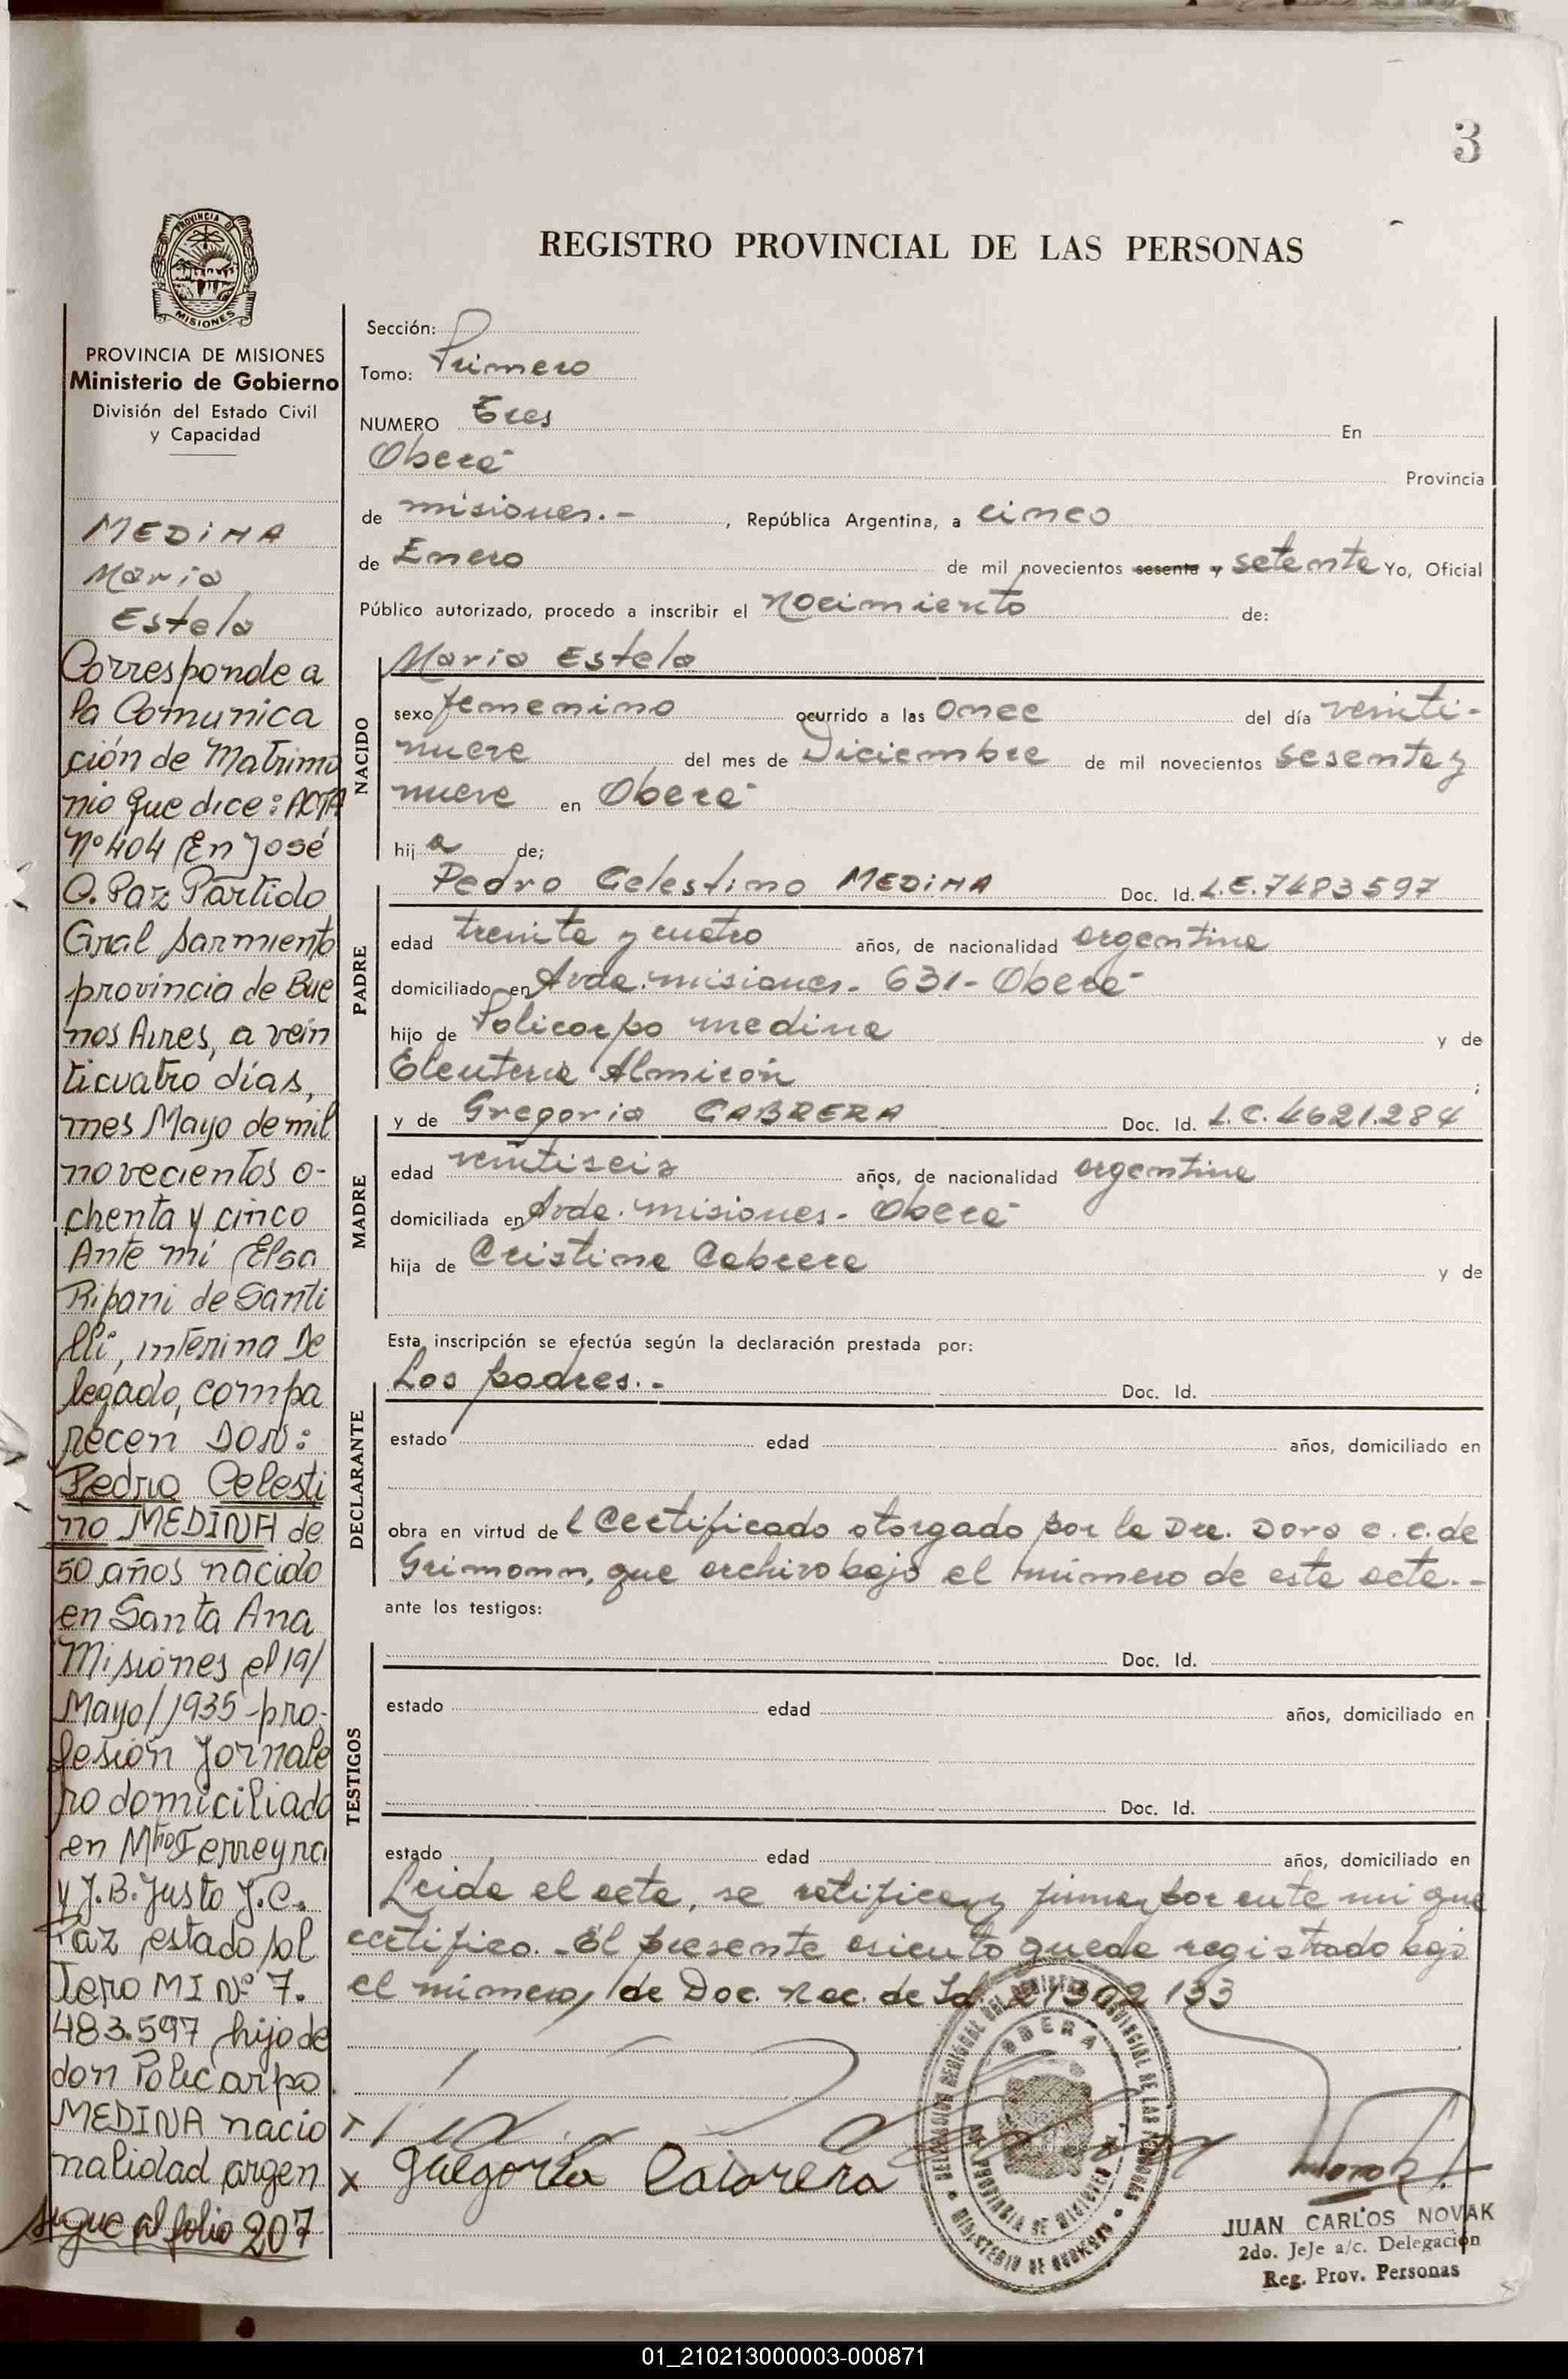 3
REGISTRO PROVINCIAL DE LAS PERSONAS
PROVINCIA
MISIONES
PROVINCIA DE MISIONES
Ministerio de Gobierno
División del Estado Civil
y Capacidad
MEDINA
Maria
Estela
Corresponde a
la Comunica
ción de Matrimo
nio que dice: ACTA
Nº 404 En José
C. Paz Partido
Gral Sarmiento
provincia de Bue
nos Aires, a vein
ticuatro días,
mes Mayo de mil
novecientos o-
chenta y cinco
Ante mí Elsa
Ripani de Santi
lli, interina De
legado, compa
recen DON:
Pedro Celesti
no MEDINA de
50 años nacido
en Santa Ana
Misiones el 19/
Mayo/1935 pro-
fesión Jornale
ro domiciliado
en Mtro Ferreyra
y J.B. Justo J.C.
Paz estado sol
tero MI Nº 7.
483.597 hijo de
don Policarpo
MEDINA nacio
nalidad argen
sigue al folio 207
Sección:
Tomo: Primero
NUMERO Tres En
Oberá Provincia
de misiones.- , República Argentina, a cinco
de Enero de mil novecientos sesenta y setenta Yo, Oficial
Público autorizado, procedo a inscribir el nacimiento de:
NACIDO
Maria Estela
sexo femenino ocurrido a las once del día veinti-
nueve del mes de Diciembre de mil novecientos sesenta y
nueve en Oberá
hij a de;
PADRE
Pedro Celestino MEDINA Doc. Id. L.E. 7483597
edad treinta y cuatro años, de nacionalidad argentina
domiciliado en Avda. misiones - 631 - Oberá
hijo de Policarpo medina y de
Eleuteria Almirón ;
MADRE
y de Gregoria CABRERA Doc. Id. L.C. 4621.284
edad veintiseis años, de nacionalidad argentina
domiciliada en Avda. misiones - Oberá
hija de Cristina Cabrera y de
Esta inscripción se efectúa según la declaración prestada por:
DECLARANTE
Los padres.- Doc. Id.
estado edad años, domiciliado en
obra en virtud de l Certificado otorgado por la Dra. Dora e. c. de
Grimonn, que archivo bajo el número de este acta.-
ante los testigos:
TESTIGOS
Doc. Id.
estado edad años, domiciliado en
Doc. Id.
estado edad años, domiciliado en
Leida el acta, se ratifican y firman por ante mi que
certifico.- El presente asiento queda registrado bajo
el número, de Doc. Nac. de Id. 21302133
x Gregoria Cabrera
DELEGACION REGIONAL DEL REGISTRO PROVINCIAL DE LAS PERSONAS
OBERA
PROVINCIA DE MISIONES
MINISTERIO DE GOBIERNO
JUAN CARLOS NOVAK
2do. JeJe a/c. Delegación
Reg. Prov. Personas
01_210213000003-000871